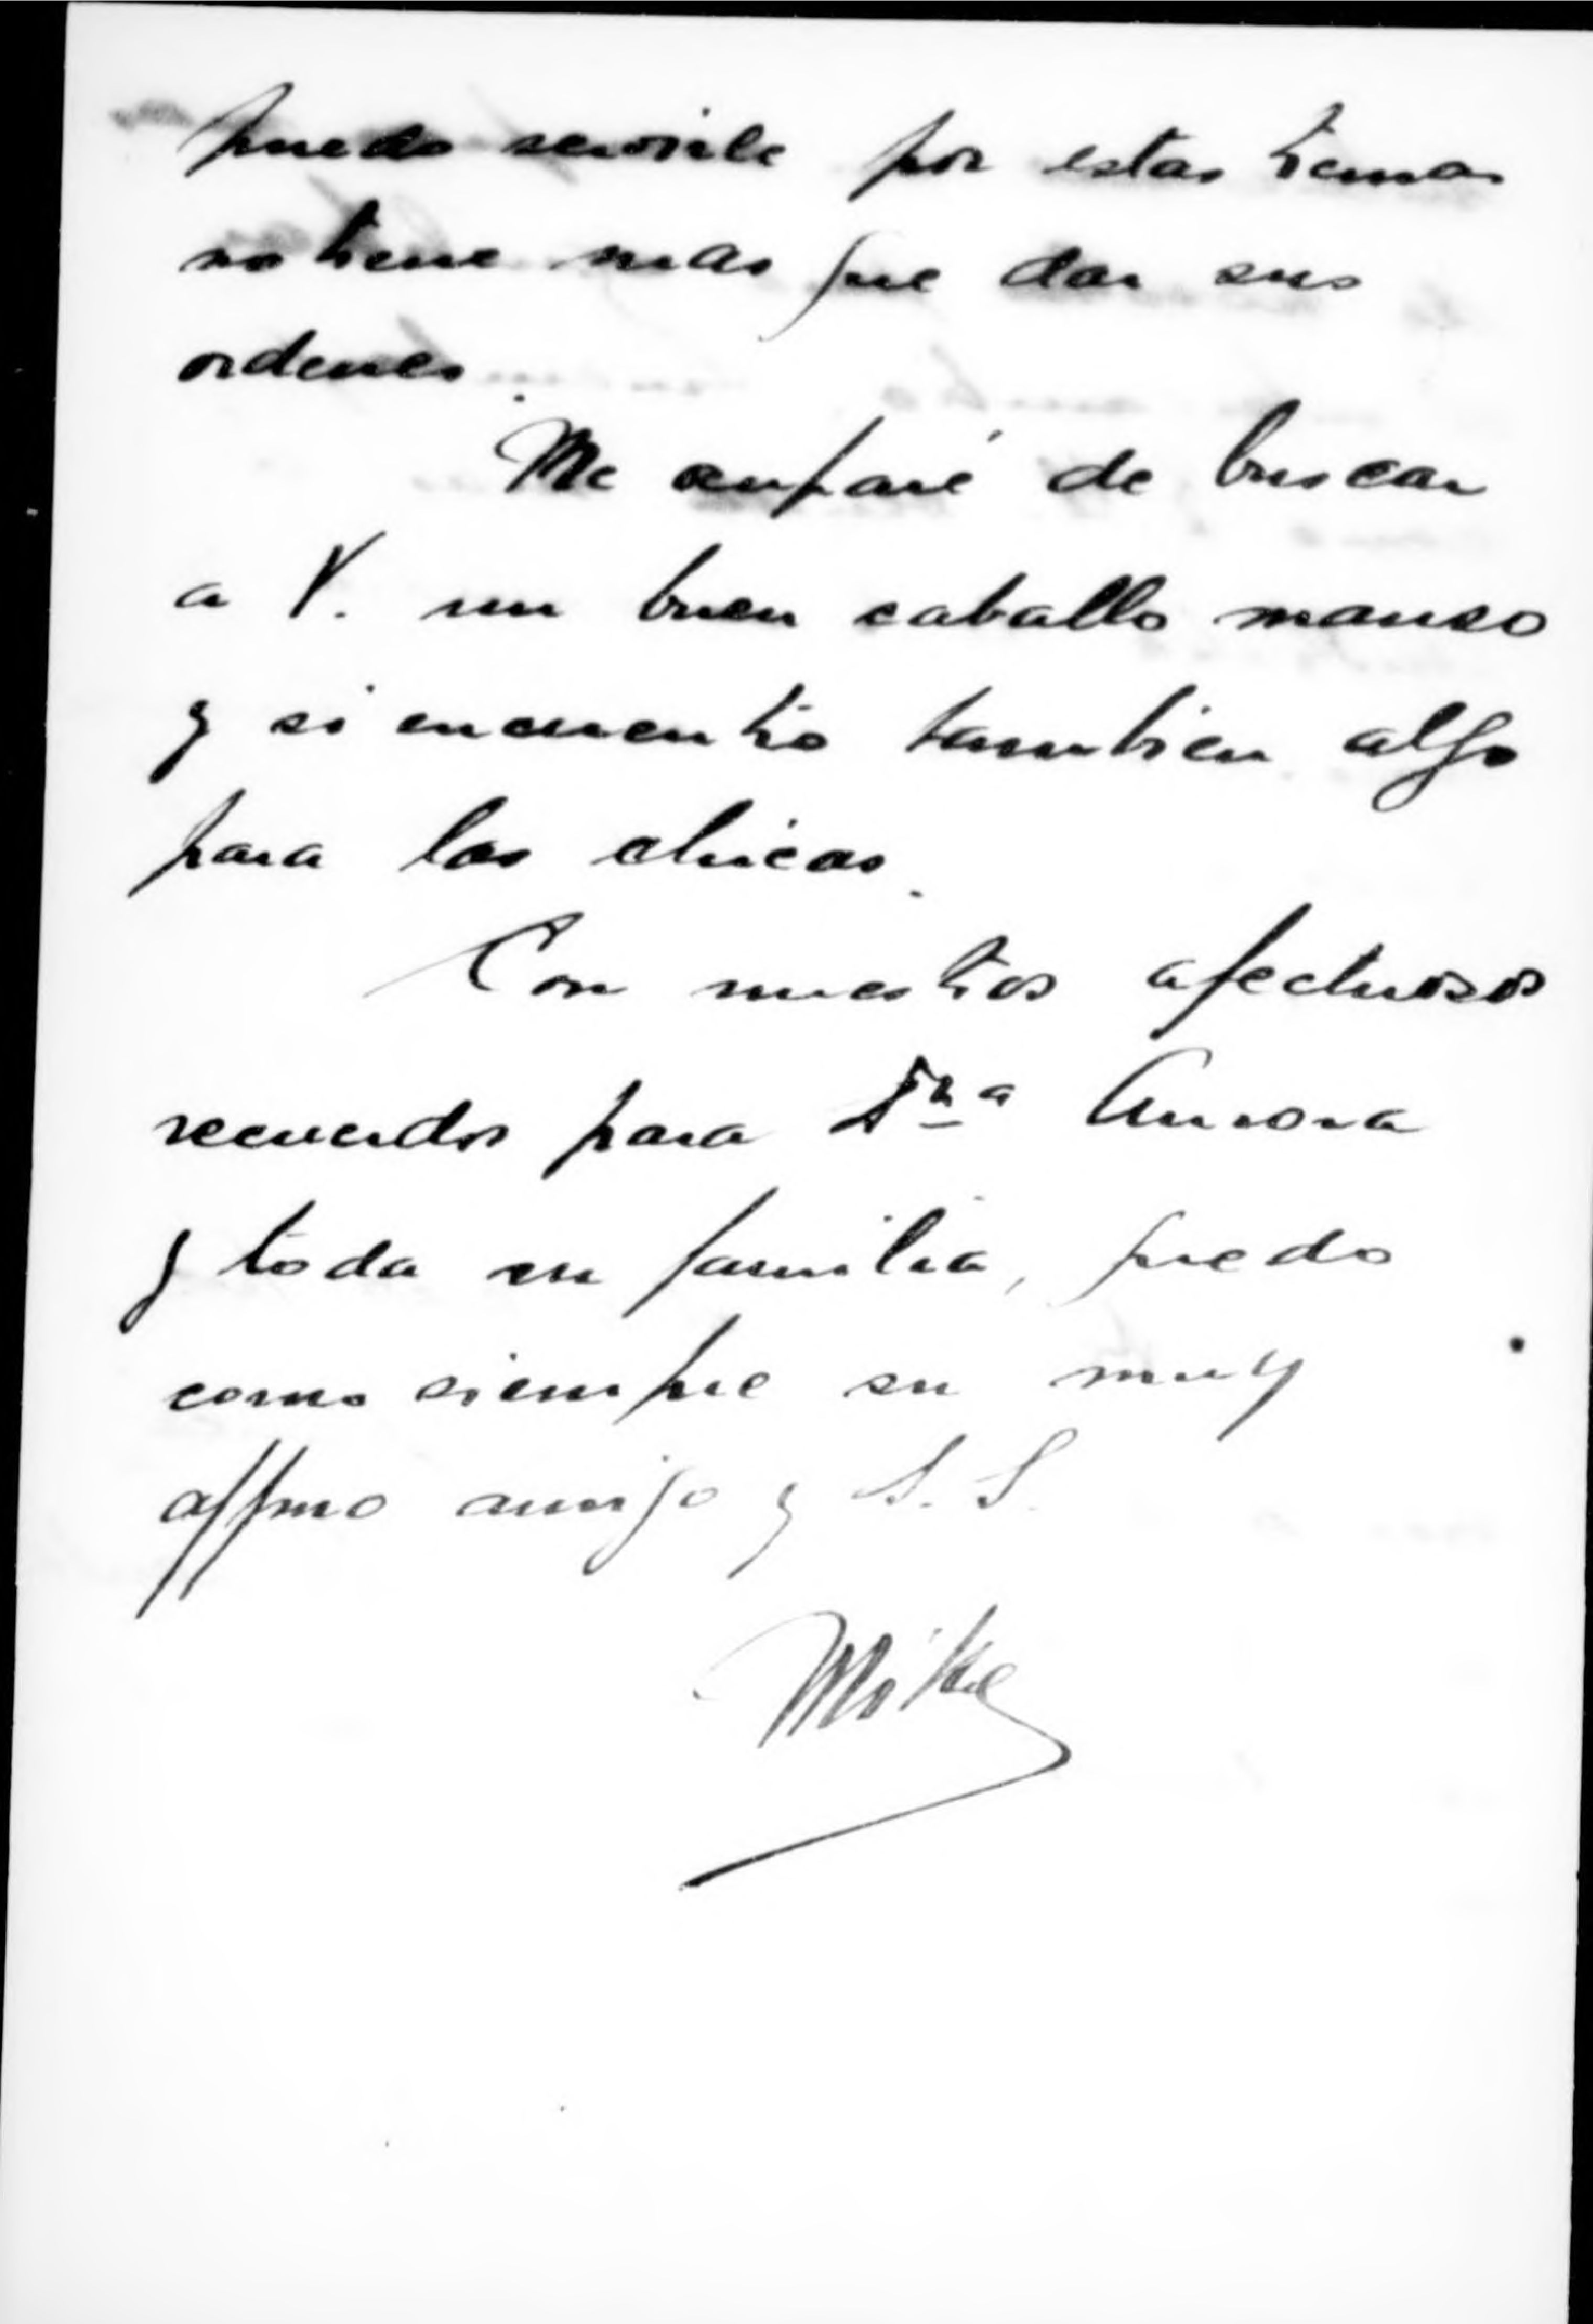 puedo servirle por estas tierras
no tiene mas que dar sus
ordenes.
Me ocuparé de buscar
a V. un buen caballo manso
y si encuentro tambien algo
para las chicas.
Con nuestros afectuosos
recuerdos para Dña Aurora
y toda su familia, quedo
como siempre su muy
affmo amigo y S. S.
Mike